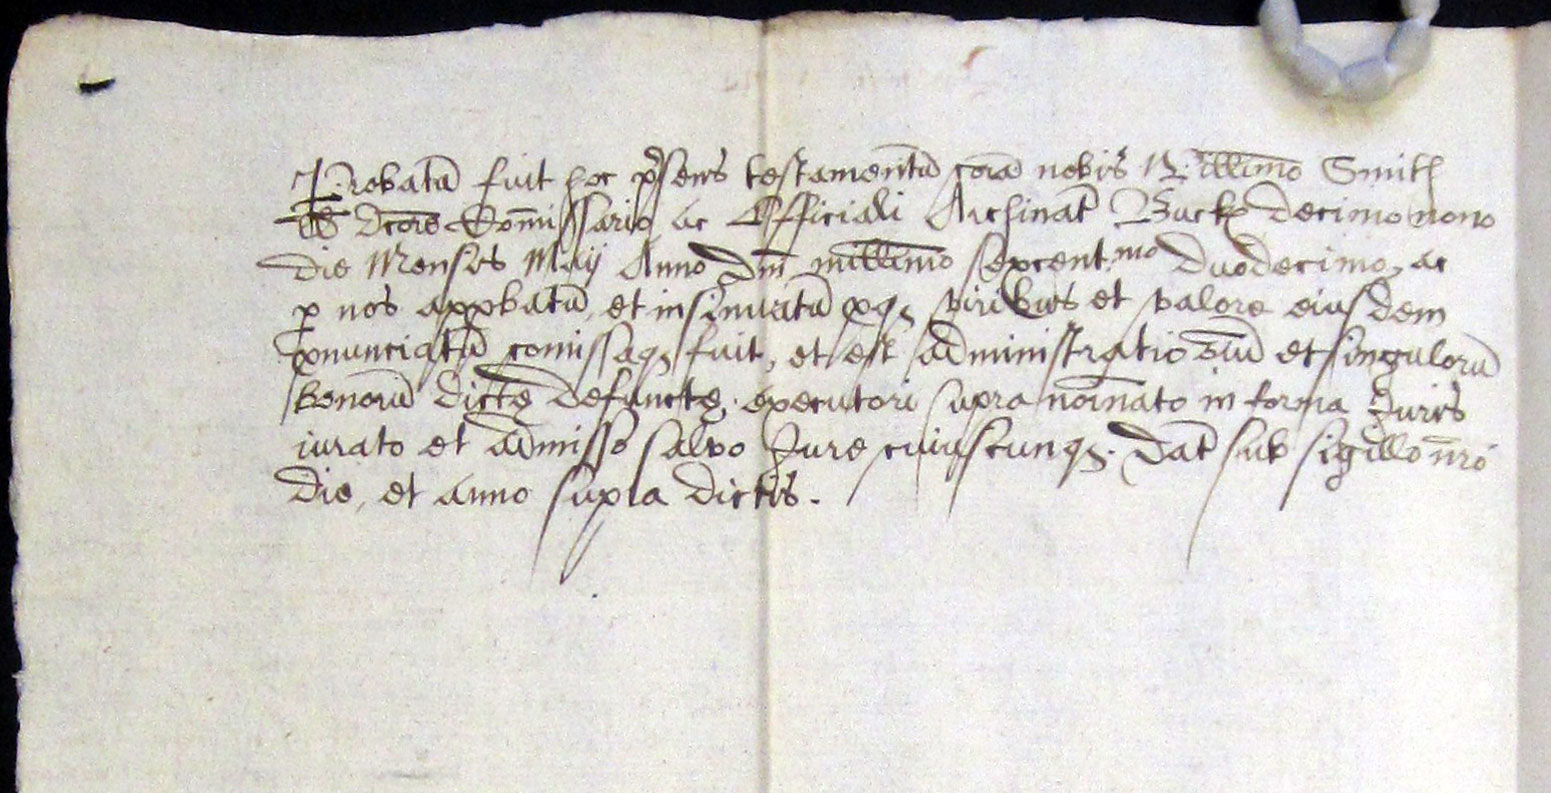 Probatũ fuit hoc p̃sens testamentũ corã nobis Willim̃o Smith
LL Dc̃ore Com̃issario ac Officiali Archinat̃ Buck decimo nono
die Mensis Maij Anno Dm̃ millim̃o sexcent.mo duodecimo, ac
p nos approbatũ, et insinuatũ proq viribus et valore eiusdem
pronunciatũ comissaq fuit, et est administratio oĩu et singulorũ
bonorũ dicte defuncte, executori supra noĩnato in forma Juris
iurato et admisso salvo Jure cuiuscunq. Dat̃ sub sigillo nr̃o
die, et anno supra dictis.